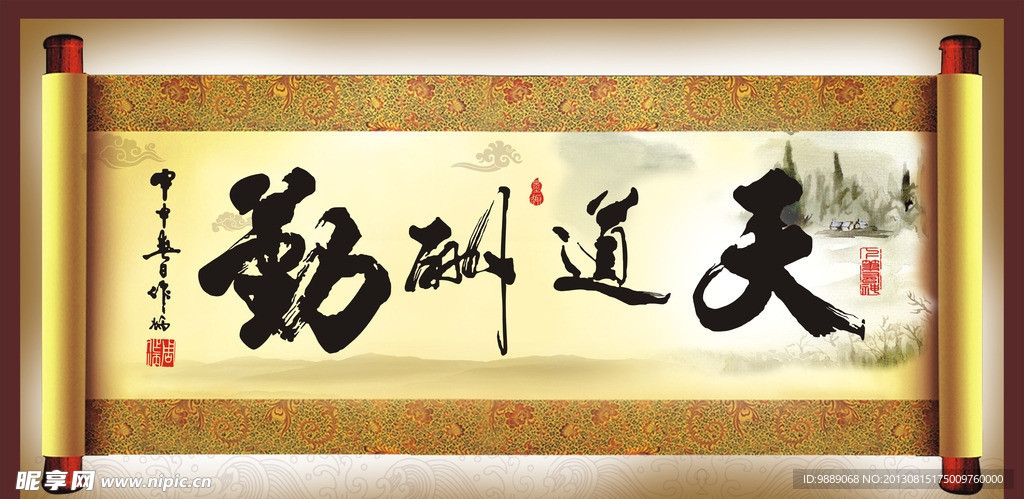 天道酬勤
昵享网 www.nipic.cn
ID:9889068 NO:20130815175009760000